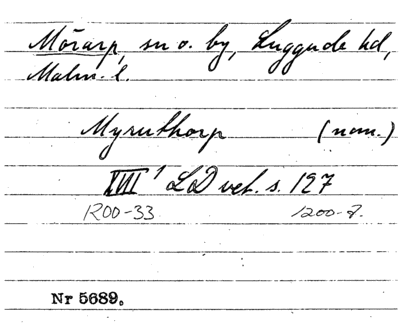 Mörarp, sn o. by, Luggude hd,
Malm. l.
Myruthorp (nom.)
XVII 1 LD vet. s. 127
1200-33 1200-t.
Nr 5689.